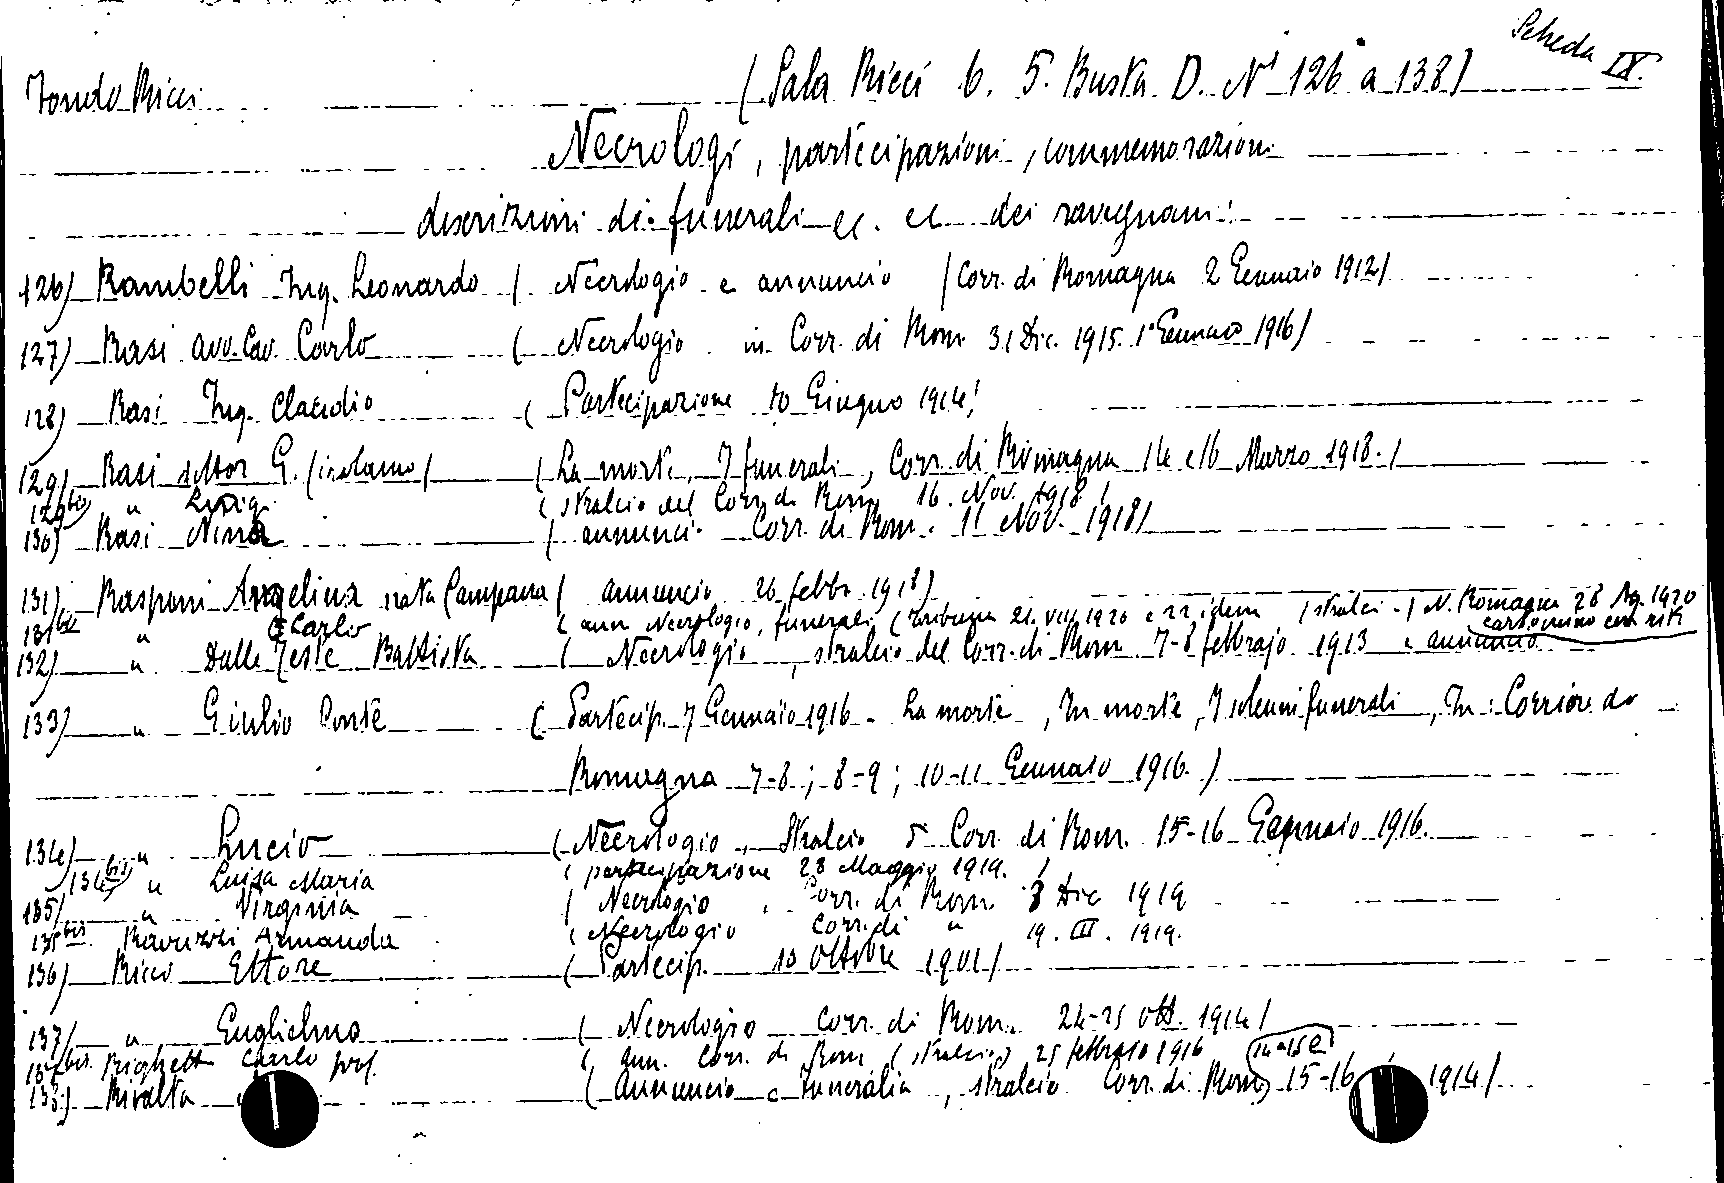 Scheda IX.
Fondo Ricci (Sala Ricci b. 5. Busta D. Nⁱ 126 a 138)
Necrologi, partecipazioni, commemorazioni
descrizioni di funerali ec. ec. dei ravegnani:
126) Rambelli Ing. Leonardo ( Necrologio e annuncio (Corr. di Romagna 2 Gennaio 1912)
127) Rasi avv. Cav. Carlo ( Necrologio in Corr. di Rom. 31 Dic. 1915. 1° Gennaio 1916)
128) Rasi Ing. Claudio ( Partecipazione 10 Giugno 1914)
129) Rasi dottor G. (irolamo) ( La morte, I funerali, Corr. di Romagna 14 e 16 Marzo 1918.)
129bis) " Luigi ( stralcio del Corr. di Rom. 16. Nov. 1918)
130) Rasi Nina ( annunci. Corr. di Rom. 11 Nov. 1918)
131) Rasponi Angelina nata Campana ( annuncio 26 febbr. 1918)
131bis " Carlo ( ann. Necrologio, funerali (Tribuna 21. VIII. 1920 e 22 idem (stralci.) N. Romagna 28 Ag. 1920
cartoncino con riti
132) " Dalle Teste Battista ( Necrologio, stralcio del Corr. di Rom. 7-8 febbrajo 1913 e annuncio
133) " Giulio Conte ( Partecip. 7 Gennaio 1916. La morte, In morte, I solenni funerali, In: Corriere di
Romagna 7-8; 8-9; 10-11 Gennaio 1916.)
134) " Lucio ( Necrologio, Stralcio Corr. di Rom. 15-16 Gennaio 1916.
134bis) " Luisa Maria ( partecipazione 28 Maggio 1919.)
135) " Virginia ( Necrologio. Corr. di Rom. 3 Dic 1919
135bis. Ravuzzi Armanda ( Necrologio Corr. di " 19. III. 1919.
136) Ricci Ettore ( Partecip. 10 Ottobre 1901)
137) " Guglielmo ( Necrologio Corr. di Rom. 24-25 Ott. 1914)
137bis. Righetti Carlo prof. ( ann. Corr. di Rom (stralcio) 25 febbraio 1916
138) Rivalta ( Annuncio e funeralia, stralcio Corr. di Rom, 15-16 1914)